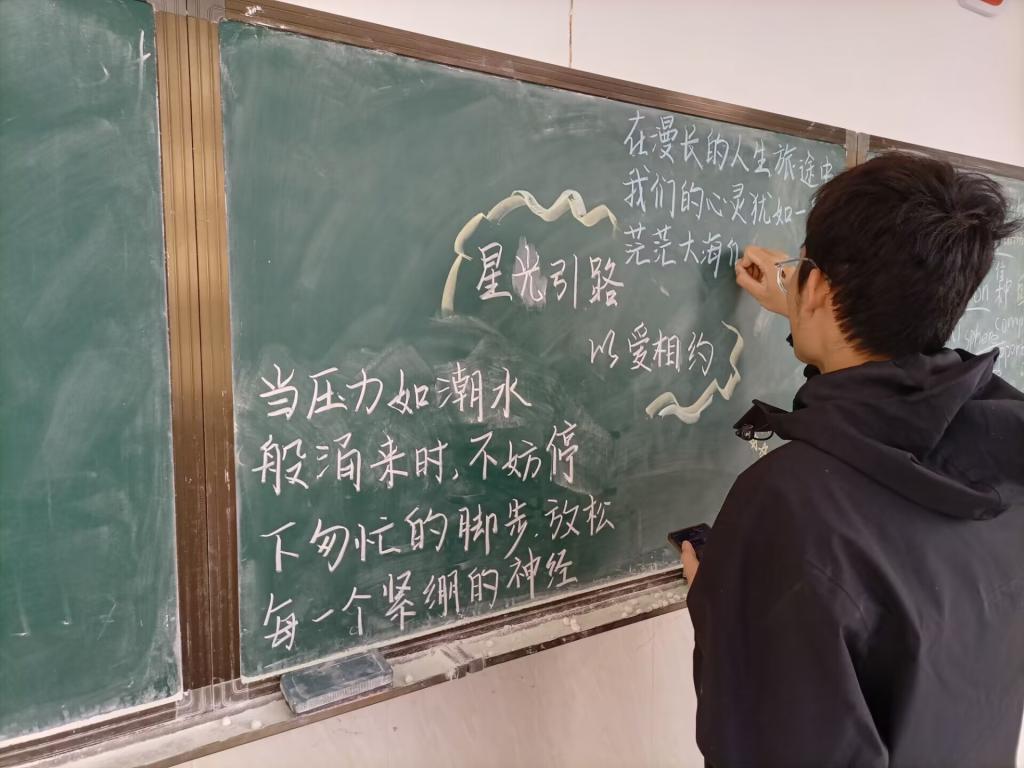 在漫长的人生旅途中
我们的心灵犹如一
茫茫大海
星光引路
以爱相约
当压力如潮水
般涌来时,不妨停
下匆忙的脚步.放松
每一个紧绷的神经